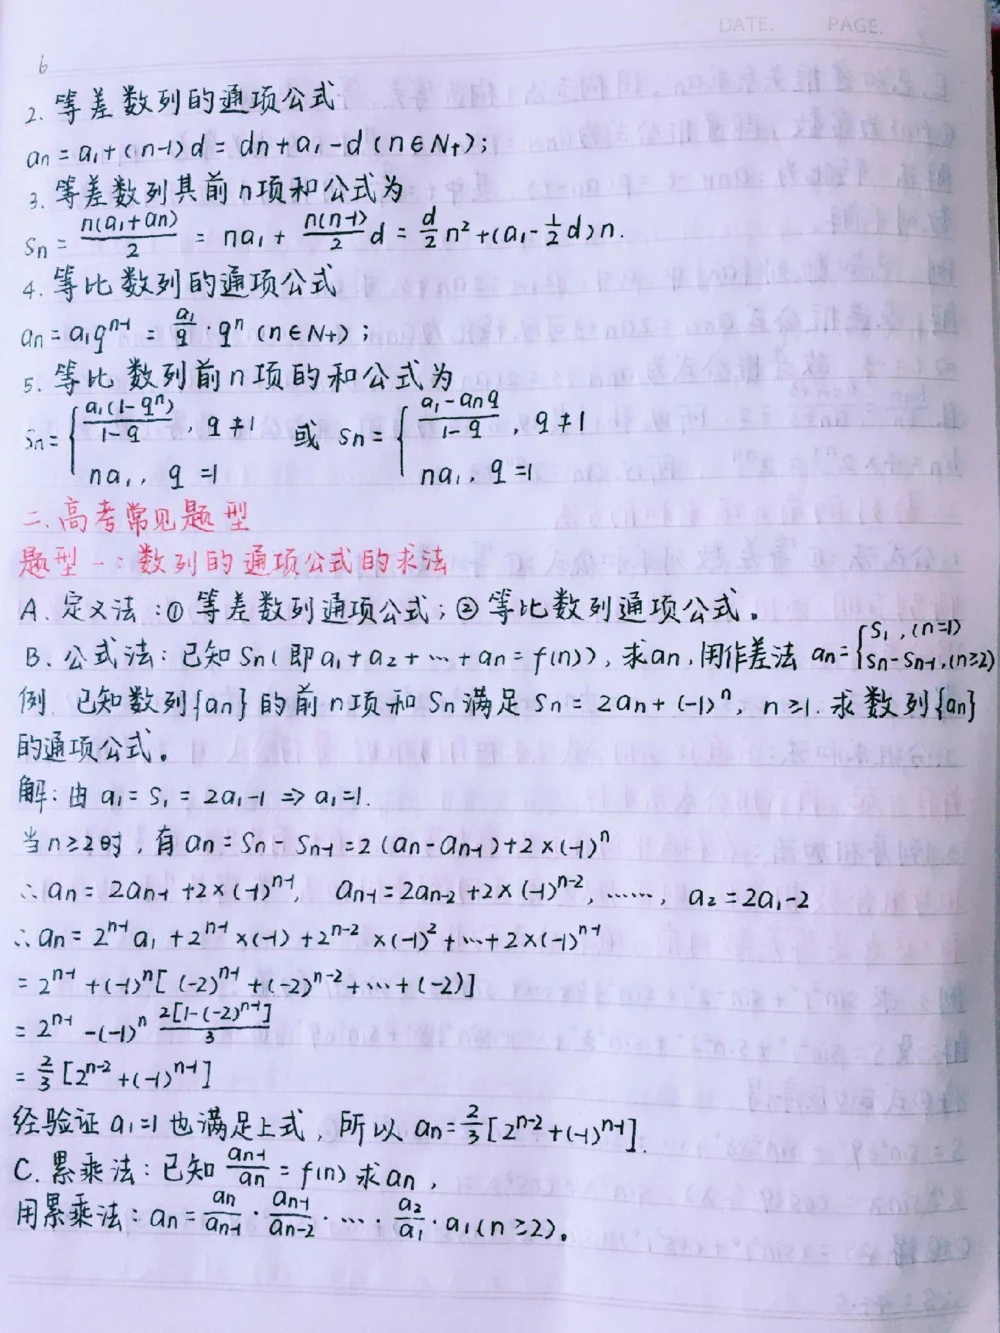 DATE. PAGE.
6
2. 等差数列的通项公式
an = a₁+(n-1)d = dn+a₁-d (n∈N+);
3. 等差数列其前n项和公式为
Sn = n(a₁+an)/2 = na₁ + n(n-1)/2 d = d/2 n² + (a₁ - 1/2 d)n.
4. 等比数列的通项公式
an = a₁qⁿ⁻¹ = a₁/q · qⁿ (n∈N+);
5. 等比数列前n项的和公式为
Sn = { a₁(1-qⁿ)/(1-q), q≠1 或 Sn = { (a₁-anq)/(1-q), q≠1
na₁, q=1 na₁, q=1
二. 高考常见题型
题型一: 数列的通项公式的求法
A. 定义法: ① 等差数列通项公式; ② 等比数列通项公式。
B. 公式法: 已知Sn (即a₁+a₂+⋯+an=f(n)), 求an, 用作差法 an = { S₁, (n=1) Sn-Sn-1, (n≥2)
例. 已知数列{an}的前n项和Sn满足Sn=2an+(-1)ⁿ, n≥1. 求数列{an}
的通项公式。
解: 由 a₁=S₁=2a₁-1 ⇒ a₁=1.
当n≥2时, 有an=Sn-Sn-1=2(an-an-1)+2×(-1)ⁿ
∴an=2an-1+2×(-1)ⁿ⁻¹, an-1=2an-2+2×(-1)ⁿ⁻², ……, a₂=2a₁-2
∴an=2ⁿ⁻¹a₁+2ⁿ⁻¹×(-1)+2ⁿ⁻²×(-1)²+⋯+2×(-1)ⁿ⁻¹
=2ⁿ⁻¹+(-1)ⁿ[(-2)ⁿ⁻¹+(-2)ⁿ⁻²+⋯+(-2)]
=2ⁿ⁻¹-(-1)ⁿ 2[1-(-2)ⁿ⁻¹]/3
=2/3[2ⁿ⁻²+(-1)ⁿ⁻¹]
经验证a₁=1也满足上式, 所以an=2/3[2ⁿ⁻²+(-1)ⁿ⁻¹].
C. 累乘法: 已知 an-1/an = f(n) 求an,
用累乘法: an = an/an-1 · an-1/an-2 · ⋯ · a₂/a₁ · a₁ (n≥2)。